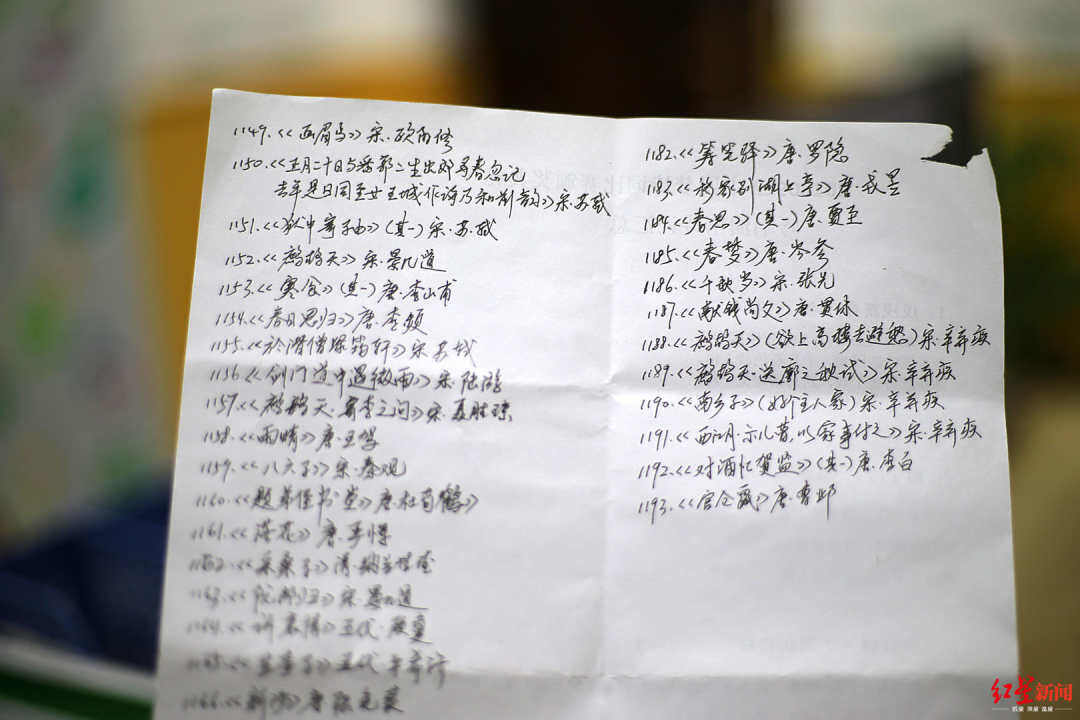 1149.《画眉鸟》宋·欧阳修
1150.《正月二十日与潘郭二生出郊寻春忽记
去年是日同至女王城作诗乃和前韵》宋·苏轼
1151.《狱中寄子由》(其一)宋·苏轼
1152.《鹧鸪天》宋·晏几道
1153.《寒食》(其一)唐·李山甫
1154.《春日思归》唐·李频
1155.《於潜僧绿筠轩》宋·苏轼
1156.《剑门道中遇微雨》宋·陆游
1157.《鹧鸪天·寄李之问》宋·聂胜琼
1158.《雨晴》唐·王驾
1159.《八六子》宋·秦观
1160.《题弟侄书堂》唐·杜荀鹤》
1161.《落花》唐·
1162.《采桑子》清·纳兰性德
1163.《阮郎归》宋·晏几道
1164.《诉衷情》五代·顾敻
1165.《生查子》五代·牛希济
1166.《新沙》唐·陆龟蒙
1182.《筹笔驿》唐·罗隐
1183.《移家别湖上亭》唐·戎昱
1184.《春思》(其一)唐·贾至
1185.《春梦》唐·岑参
1186.《千秋岁》宋·张先
1187.《献钱尚父》唐·贯休
1188.《鹧鸪天》(欲上高楼去避愁)宋·辛弃疾
1189.《鹧鸪天·送廓之秋试》宋·辛弃疾
1190.《南乡子》(好个主人家)宋·辛弃疾
1191.《西江月·示儿曹,以家事付之》宋·辛弃疾
1192.《对酒忆贺监》(其一)唐·李白
1193.《官仓鼠》唐·曹邺
红星新闻